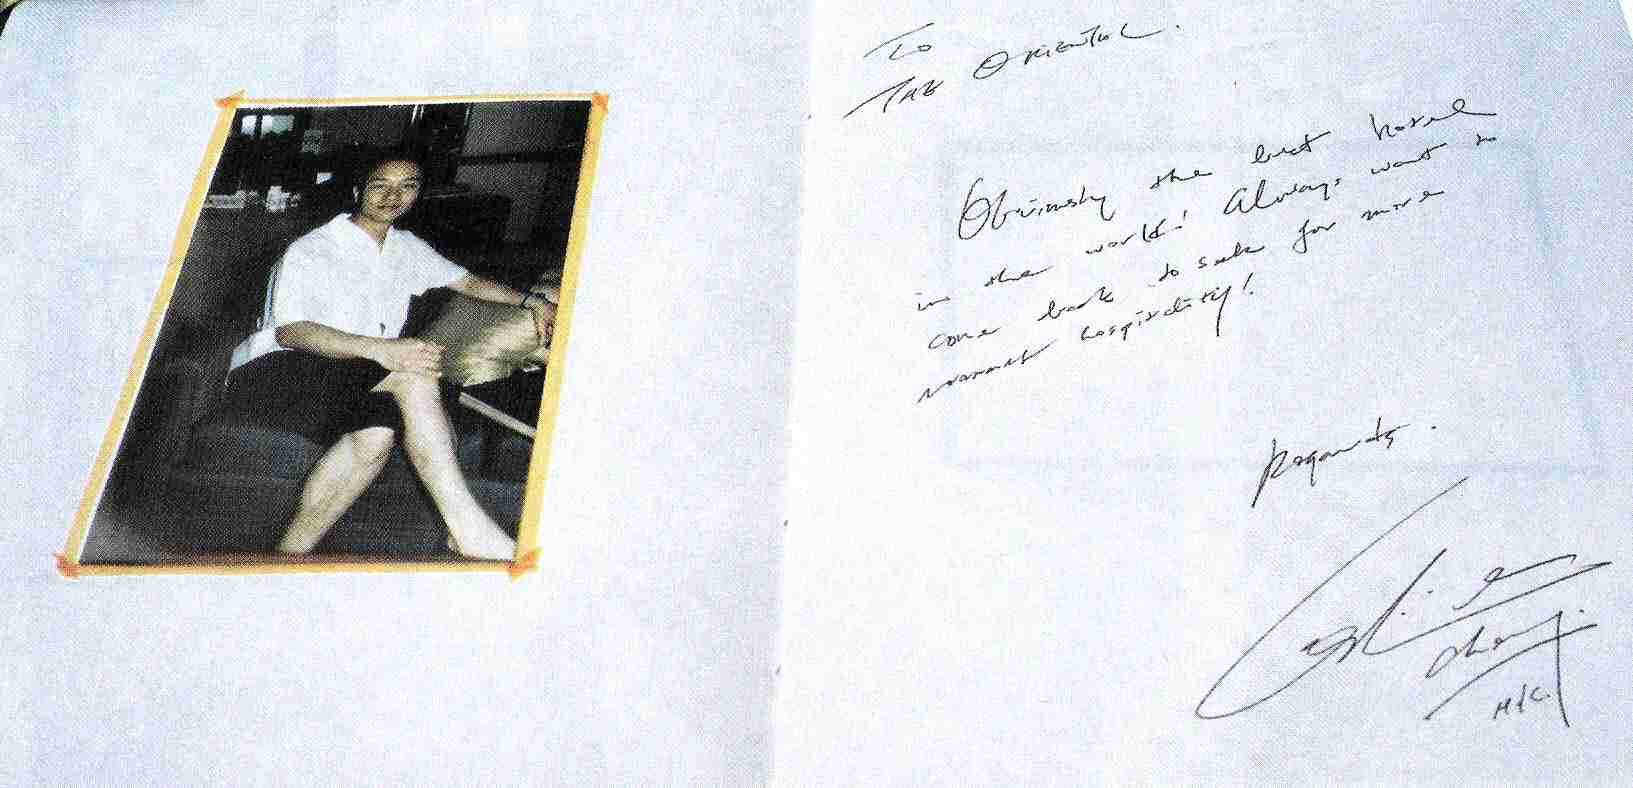 To
THE ORIENTAL.
Obviously the best hotel
in the world! Always want to
come back to seek for more
warmest hospitality!
Regards.
Leslie
Cheung
H.K.